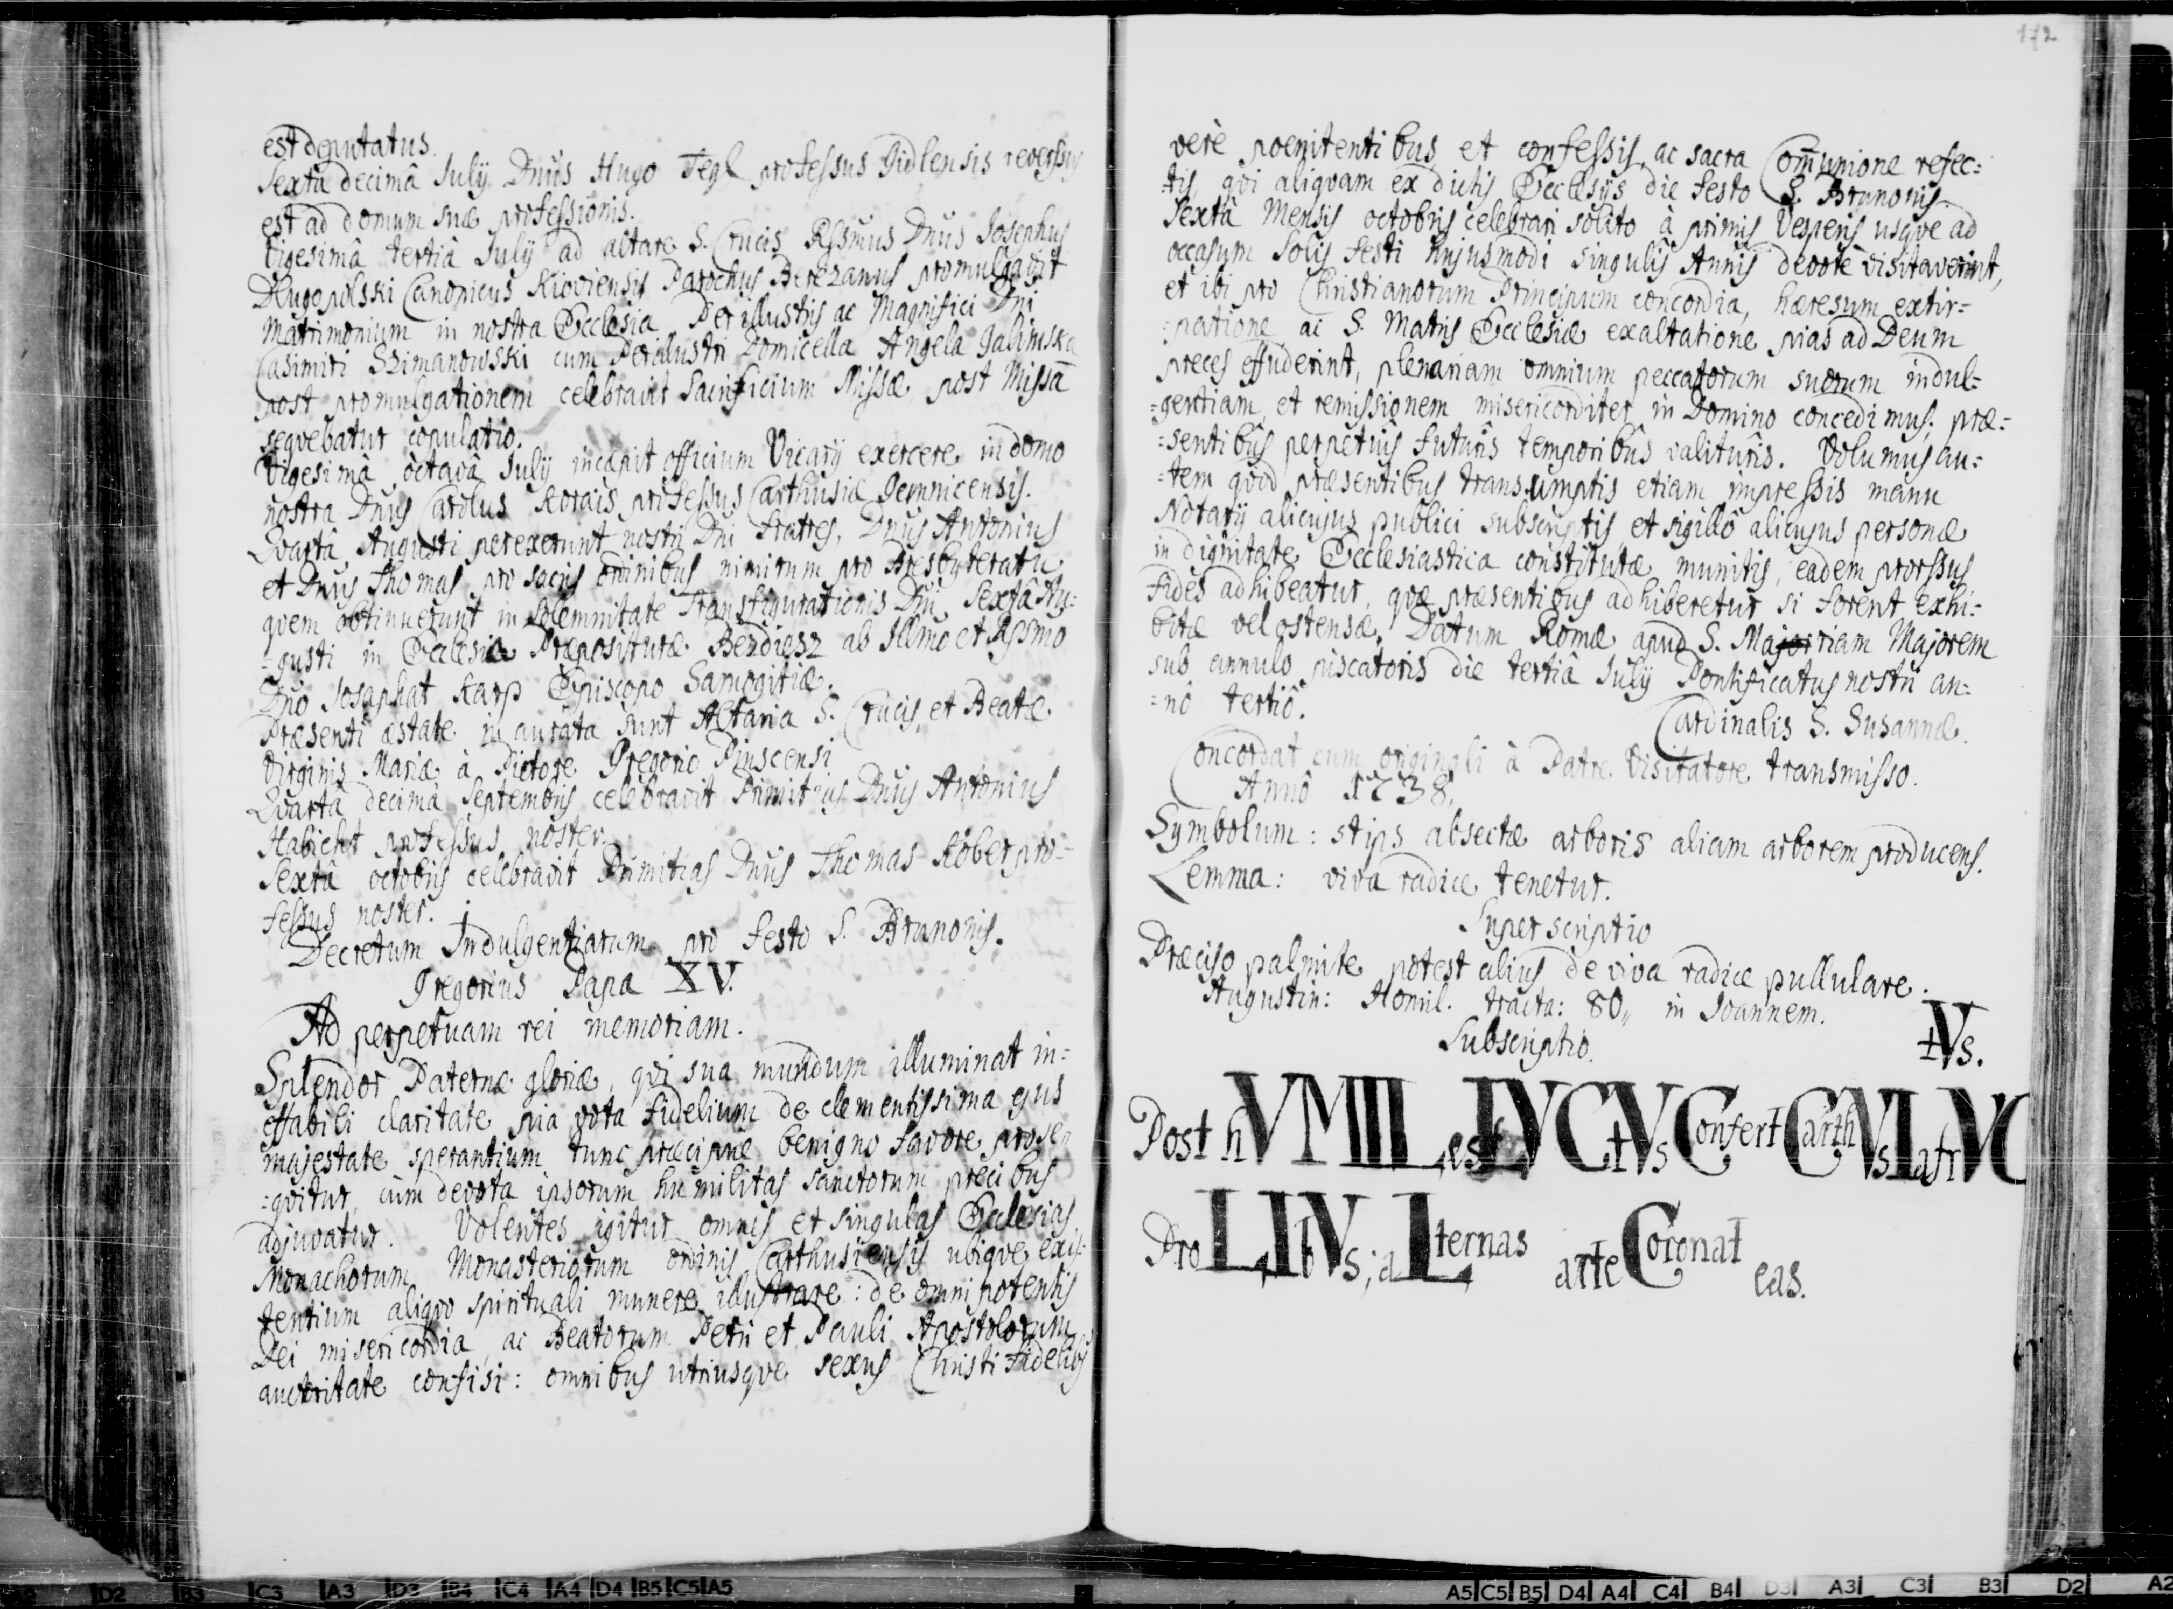 est deputatus.
Sexta decimâ Julÿ Dnus Hugo Tegl professus Gidlensis reverssus
est ad domum suæ professionis.
Vigesimâ tertiâ Julÿ ad altare S. Crucis Rssmus Dnus Josephus
Dlugopolski Canonicus Kioviensis Parochus Berezanus promulgavit
Matrimonium in nostra Ecclesia Perillustris ac Magnifici Dni
Casimiri Szimanowski cum Perillustri Domicella Angela Jalinska
post promulgationem celebravit Sacrificium Missæ, post Missã
seqvebatur copulatio.
Vigesimâ octavâ Julÿ incæpit officium Vicarÿ exercere in domo
nostra Dnus Carolus Korais professus Carthusiæ Gemnicensis.
Qvartâ Augusti perexerunt nostri Dni fratres, Dnus Antonius
et Dnus Thomas pro sacris ordinibus nimirum pro Presbyteratu
qvem obtinuerunt in solemnitate Transfigurationis Dni, Sextâ Au:
=gusti in Ecclesia Præposituræ Berdiesz ab Illmo et Rssmo
Dño Josaphat Karp Episcopo Samogitiæ.
Præsenti æstate in aurata sunt Altaria S. Crucis, et Beatæ
Virginis Mariæ à Pictore Gregorio Pinscensi
Qvartâ decimâ Septembris celebravit Primitias Dnus Antonius
Habicht professus noster.
Sextâ octobris celebravit Primitias Dnus Thomas Köber pro=
fessus noster.
Decretum Indulgentiarum pro festo S. Brunonis.
Gregorius Papa XV.
Ad perpetuam rei memoriam.
Splendor Paternæ gloriæ, qvi sua mundum illuminat in=
effabili claritate pia vota fidelium de clementissima ejus
majestate sperantium tunc præcipuè benigno favore prose
=qvitur, cùm devota ipsorum humilitas sanctorum precibus
adjuvatur. Volentes igitur omnes et singulas Ecclesias
Monachorum Monasteriorum ordinis Carthusiensis ubiqve exis=
tentium aliqvo spirituali munere illustrare: de omnipotentis
Dei misericordia, ac Beatorum Petri et Pauli Apostolorum
auctoritate confisi: omnibus utriusqve sexus Christi fidelibus
172
verè poenitentibus et confessis, ac sacra Com̃unione refec:
=tis, qvi aliqvam ex dictis Ecclesÿs die festo S. Brunonis
Sextâ Mensis octobris celebrari solito à primis Vesperis usqve ad
occasum Solis festi hujusmodi singulis Annis devotè visitaverint,
et ibi pro Christianorum Principum concordia, hæresum extir=
=patione ac S. Matris Ecclesiæ exaltatione pias ad Deum
preces effuderint, plenariam omnium peccatorum suorum indul=
=gentiam et remissionem misericorditer in Domino concedimus; præ=
=sentibus perpetuis futuris temporibus valituris. Volumus au:
=tem qvod præsentibus transsumptis etiam impressis manu
Notarÿ alicujus publici subscriptis, et sigillô alicujus personæ
in dignitate Ecclesiastica constitutæ munitis, eadem prorssus
fides adhibeatur, qvæ præsentibus adhiberetur si forent exhi=
bitæ vel ostensæ. Datum Romæ apud S. Majoriam Majorem
sub annulo piscatoris die tertiâ Julÿ Pontificatus nostri an=
=nô tertiô.
Cardinalis S. Susannæ.
Concordat cum originali à Patre Visitatore transmisso.
Annô 1738.
Symbolum: stips absectæ arboris aliam arborem producens.
Lemma: viva radice tenetur.
Superscriptio
Præciso palmite potest alius de viva radice pullulare.
Augustin: Homil. tracta: 80„ in Joannem.
Subscriptio.
tVs.
Post hVMILes LVCtVs Confert CarthVsIa frVC
ProLIbVs; aLternas arte Coronat eas.